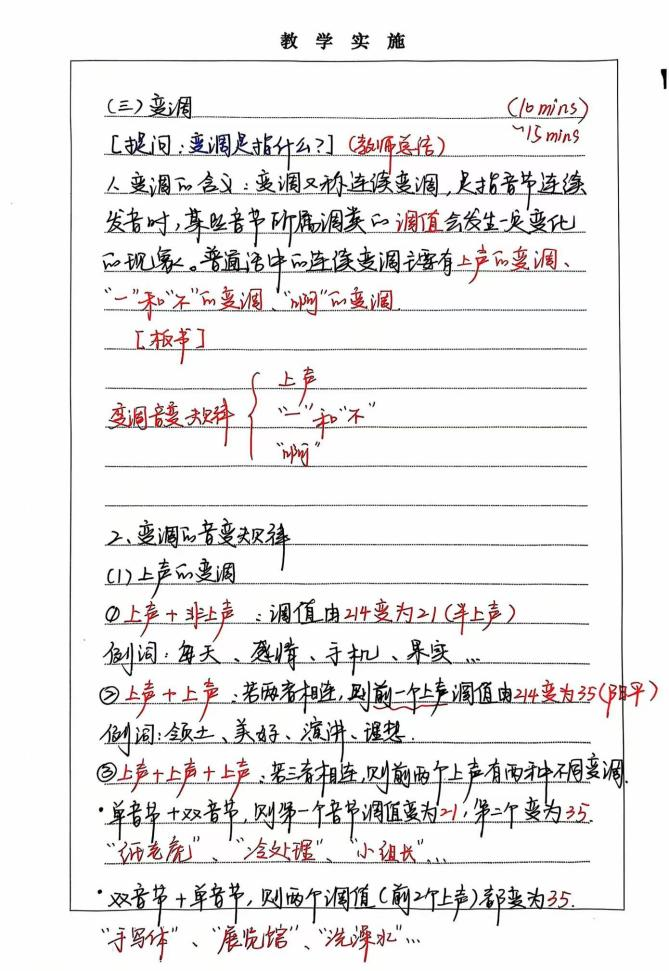 教学实施
（三）变调 （10 mins）
~15 mins
[提问：变调是指什么？]（教师总结）
1、变调的含义：变调又称连续变调，是指音节连续
发音时，某些音节所属调类的调值会发生一定变化
的现象。普通话中的连续变调主要有上声的变调、
“一”和“不”的变调、“啊”的变调.
[板书]
上声
变调音变规律 { “一”和“不”
“啊”
2、变调的音变规律
（1）上声的变调
①上声+非上声：调值由214变为21（半上声）
例词：每天、感情、手机、果实...
②上声+上声：若两者相连，则前一个上声调值由214变为35（阳平）
例词：领土、美好、演讲、理想.
③上声+上声+上声：若三者相连，则前两个上声有两种不同变调.
·单音节+双音节，则第一个音节调值变为21，第二个变为35.
“纸老虎”、“冷处理”、“小组长”...
·双音节+单音节，则两个调值（前2个上声）都变为35.
“手写体”、“展览馆”、“洗澡水”...